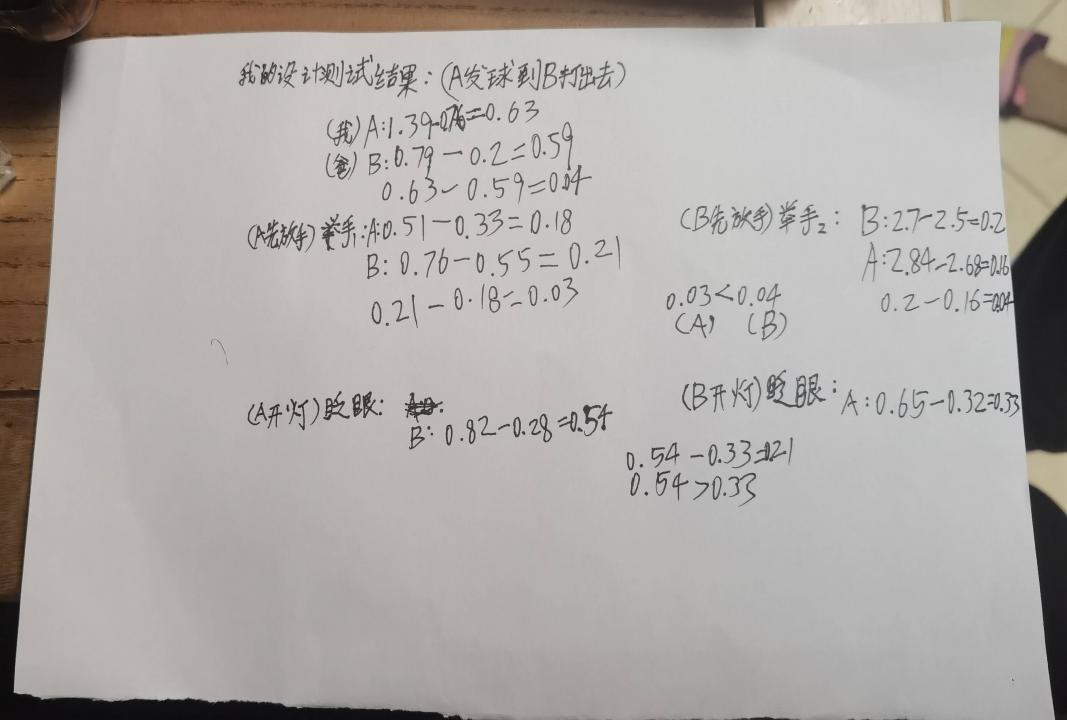 我的设计测试结果:(A发球到B打出去)
(我)A:1.39-0.76=0.63
(爸)B:0.79-0.2=0.59
0.63-0.59=0.04
(A先放手)举手1:A:0.51-0.33=0.18
B:0.76-0.55=0.21
0.21-0.18=0.03
(B先放手)举手2:B:2.7-2.5=0.2
A:2.84-2.68=0.16
0.2-0.16=0.04
0.03<0.04
(A) (B)
(A开灯)眨眼:
B:0.82-0.28=0.54
(B开灯)眨眼:A:0.65-0.32=0.33
0.54-0.33=0.21
0.54>0.33